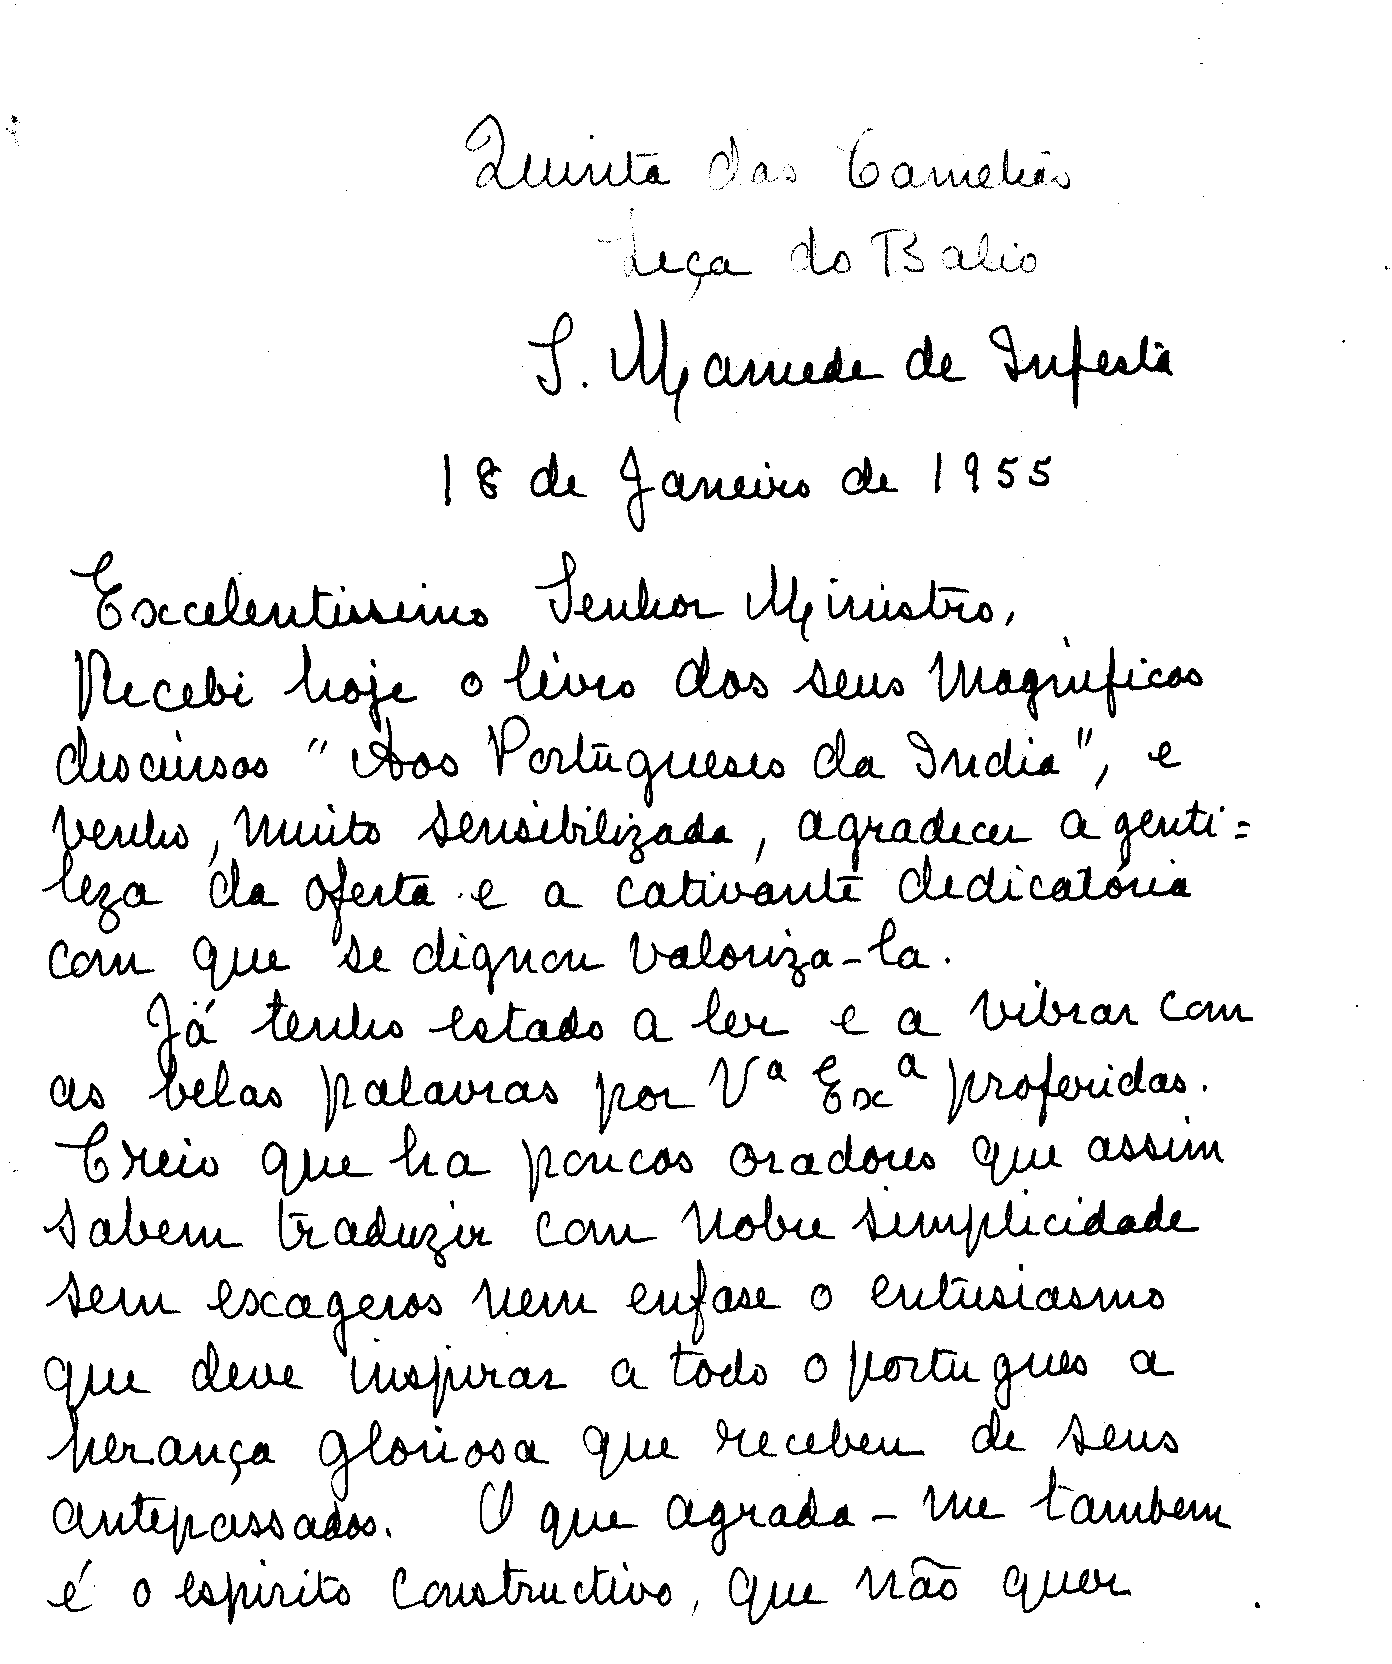 Quinta das Camelias
Leça do Balio
S. Mamede de Infesta
18 de Janeiro de 1955
Excelentissimo Senhor Ministro,
Recebi hoje o livro dos seus magnificos
discursos "Aos Portugueses da India", e
venho, muito sensibilizada, agradecer a genti=
leza da oferta e a cativante dedicatória
com que se dignou valoriza-la.
Já tenho estado a ler e a vibrar com
as belas palavras por Vª Exª proferidas.
Creio que ha poucos oradores que assim
sabem traduzir com nobre simplicidade
sem exageros nem enfase o entusiasmo
que deve inspirar a todo o portugues a
herança gloriosa que recebeu de seus
antepassados. O que agrada-me tambem
é o espirito constructivo, que não quer